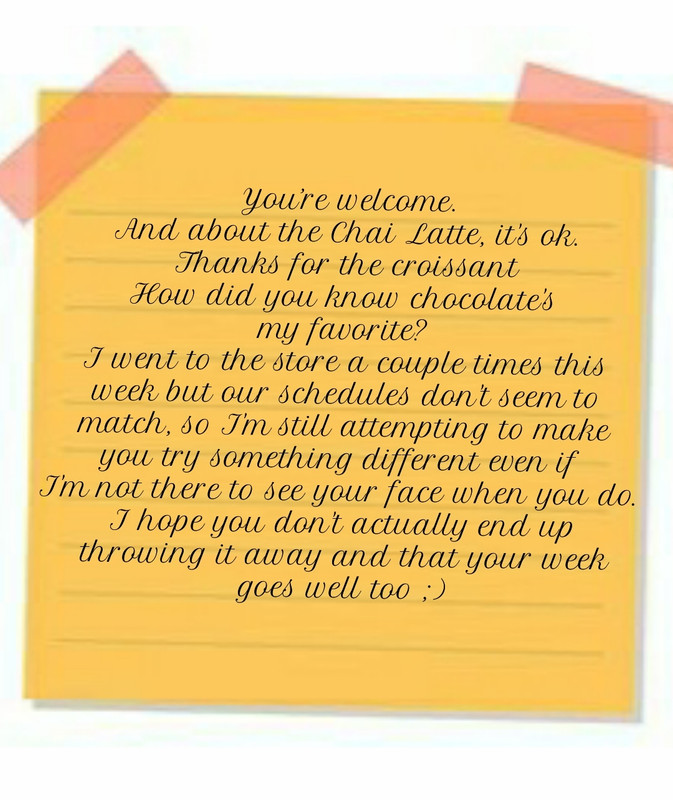 You're welcome.
And about the Chai Latte, it's ok.
Thanks for the croissant
How did you know chocolate's
my favorite?
I went to the store a couple times this
week but our schedules don't seem to
match, so I'm still attempting to make
you try something different even if
I'm not there to see your face when you do.
I hope you don't actually end up
throwing it away and that your week
goes well too ;)